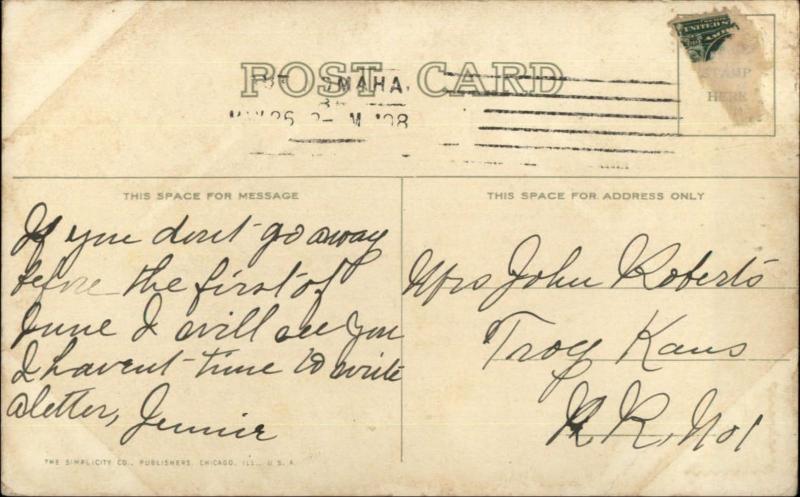 POST CARD
MAHA,
UNITED S
STAMP
HERE
THIS SPACE FOR MESSAGE
If you dont go away
before the first of
June I will see you
I havent time to write
a letter, Jennie
THIS SPACE FOR ADDRESS ONLY
Mrs John Roberts
Troy Kans
R R. No 1
THE SIMPLICITY CO., PUBLISHERS, CHICAGO, ILL., U. S. A.